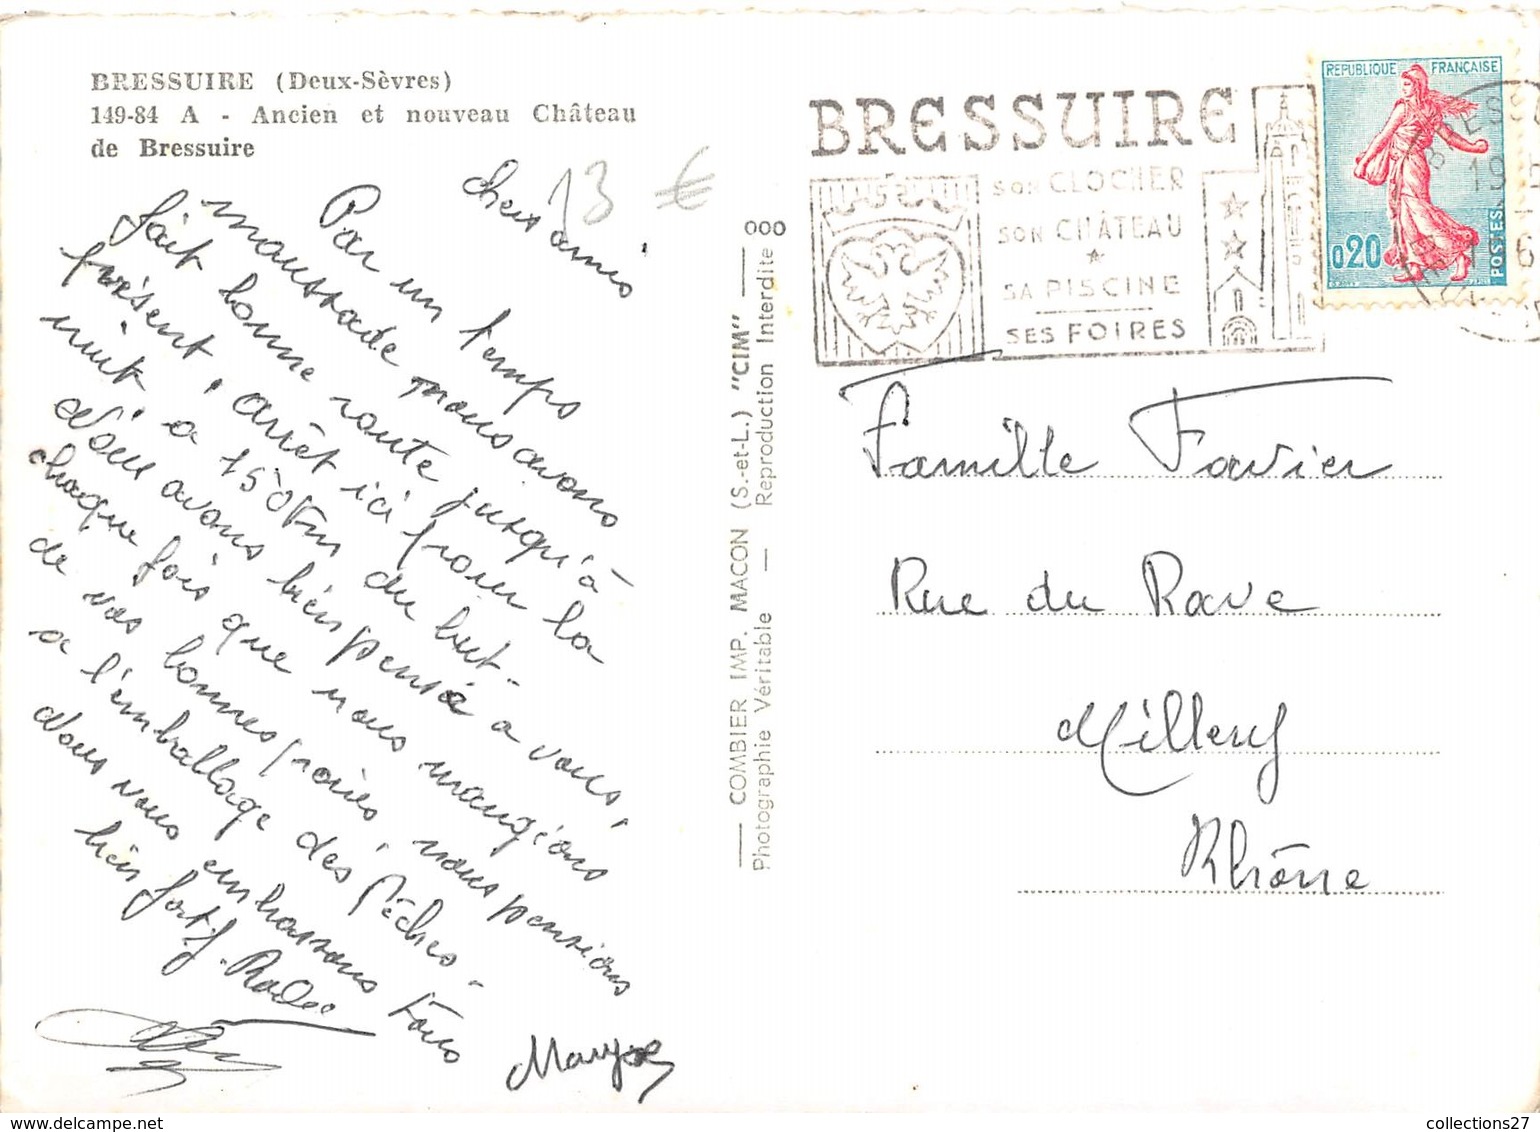 BRESSUIRE (Deux-Sèvres)
149-84 A - Ancien et nouveau Château
de Bressuire
13 €
chers amis
Par un temps
maussade nous avons
fait bonne route jusqu'à
présent, arrêt ici pour la
nuit à 150 km du but -
Nous avons bien pensé à vous,
chaque fois que nous mangions
de vos bonnes poires, nous pensions
a l'emballage des pêches -
Nous vous embrassons tous
bien fort J. Rodes
Maryse
COMBIER IMP. MACON (S.-et-L.) "CIM"
Photographie Véritable — Reproduction Interdite
000
BRESSUIRE
SON CLOCHER
SON CHÂTEAU
SA PISCINE
SES FOIRES
REPUBLIQUE FRANÇAISE
0,20
POSTES
BRESSU
19
Famille Favier
Rue du Rave
Millery
Rhône
collections27